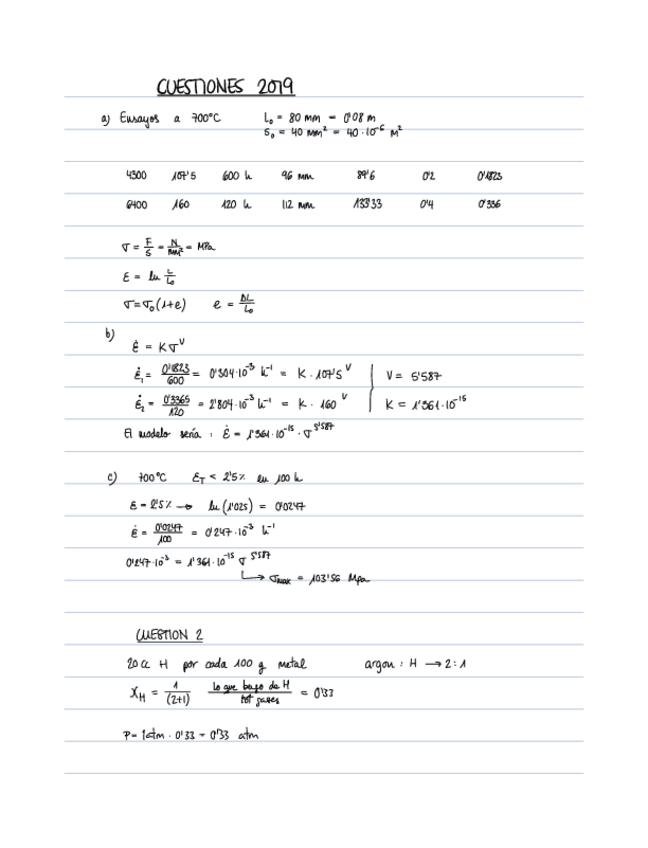 CUESTIONES 2019
a) Ensayos a 700°C L₀ = 80 mm = 0'08 m
S₀ = 40 mm² = 40·10⁻⁶ m²
4300 107'5 600 h 96 mm 89'6 0'2 0'1823
6400 160 120 h 112 mm 133'33 0'4 0'336
σ = F/S = N/mm² = MPa
ε = ln L/L₀
σ = σ₀(1+e) e = ΔL/L₀
b)
ε̇ = Kσ^V
ε̇₁ = 0'1823/600 = 0'304·10⁻³ h⁻¹ = K · 107'5^V V = 5'587
ε̇₂ = 0'3365/120 = 2'804·10⁻³ h⁻¹ = K · 160^V K = 1'361·10⁻¹⁵
El modelo sería : ε̇ = 1'361·10⁻¹⁵ · σ^5'587
c) 700°C ε_T < 2'5% en 100 h
ε = 2'5% → ln (1'025) = 0'0247
ε̇ = 0'0247/100 = 0'247·10⁻³ h⁻¹
0'247·10⁻³ = 1'361·10⁻¹⁵ σ^5'587
↳ σmax = 103'56 Mpa
CUESTION 2
20 cc H por cada 100 g metal argon : H → 2:1
X_H = 1/(2+1) lo que bajo de H/tot gases = 0'33
P = 1atm · 0'33 = 0'33 atm